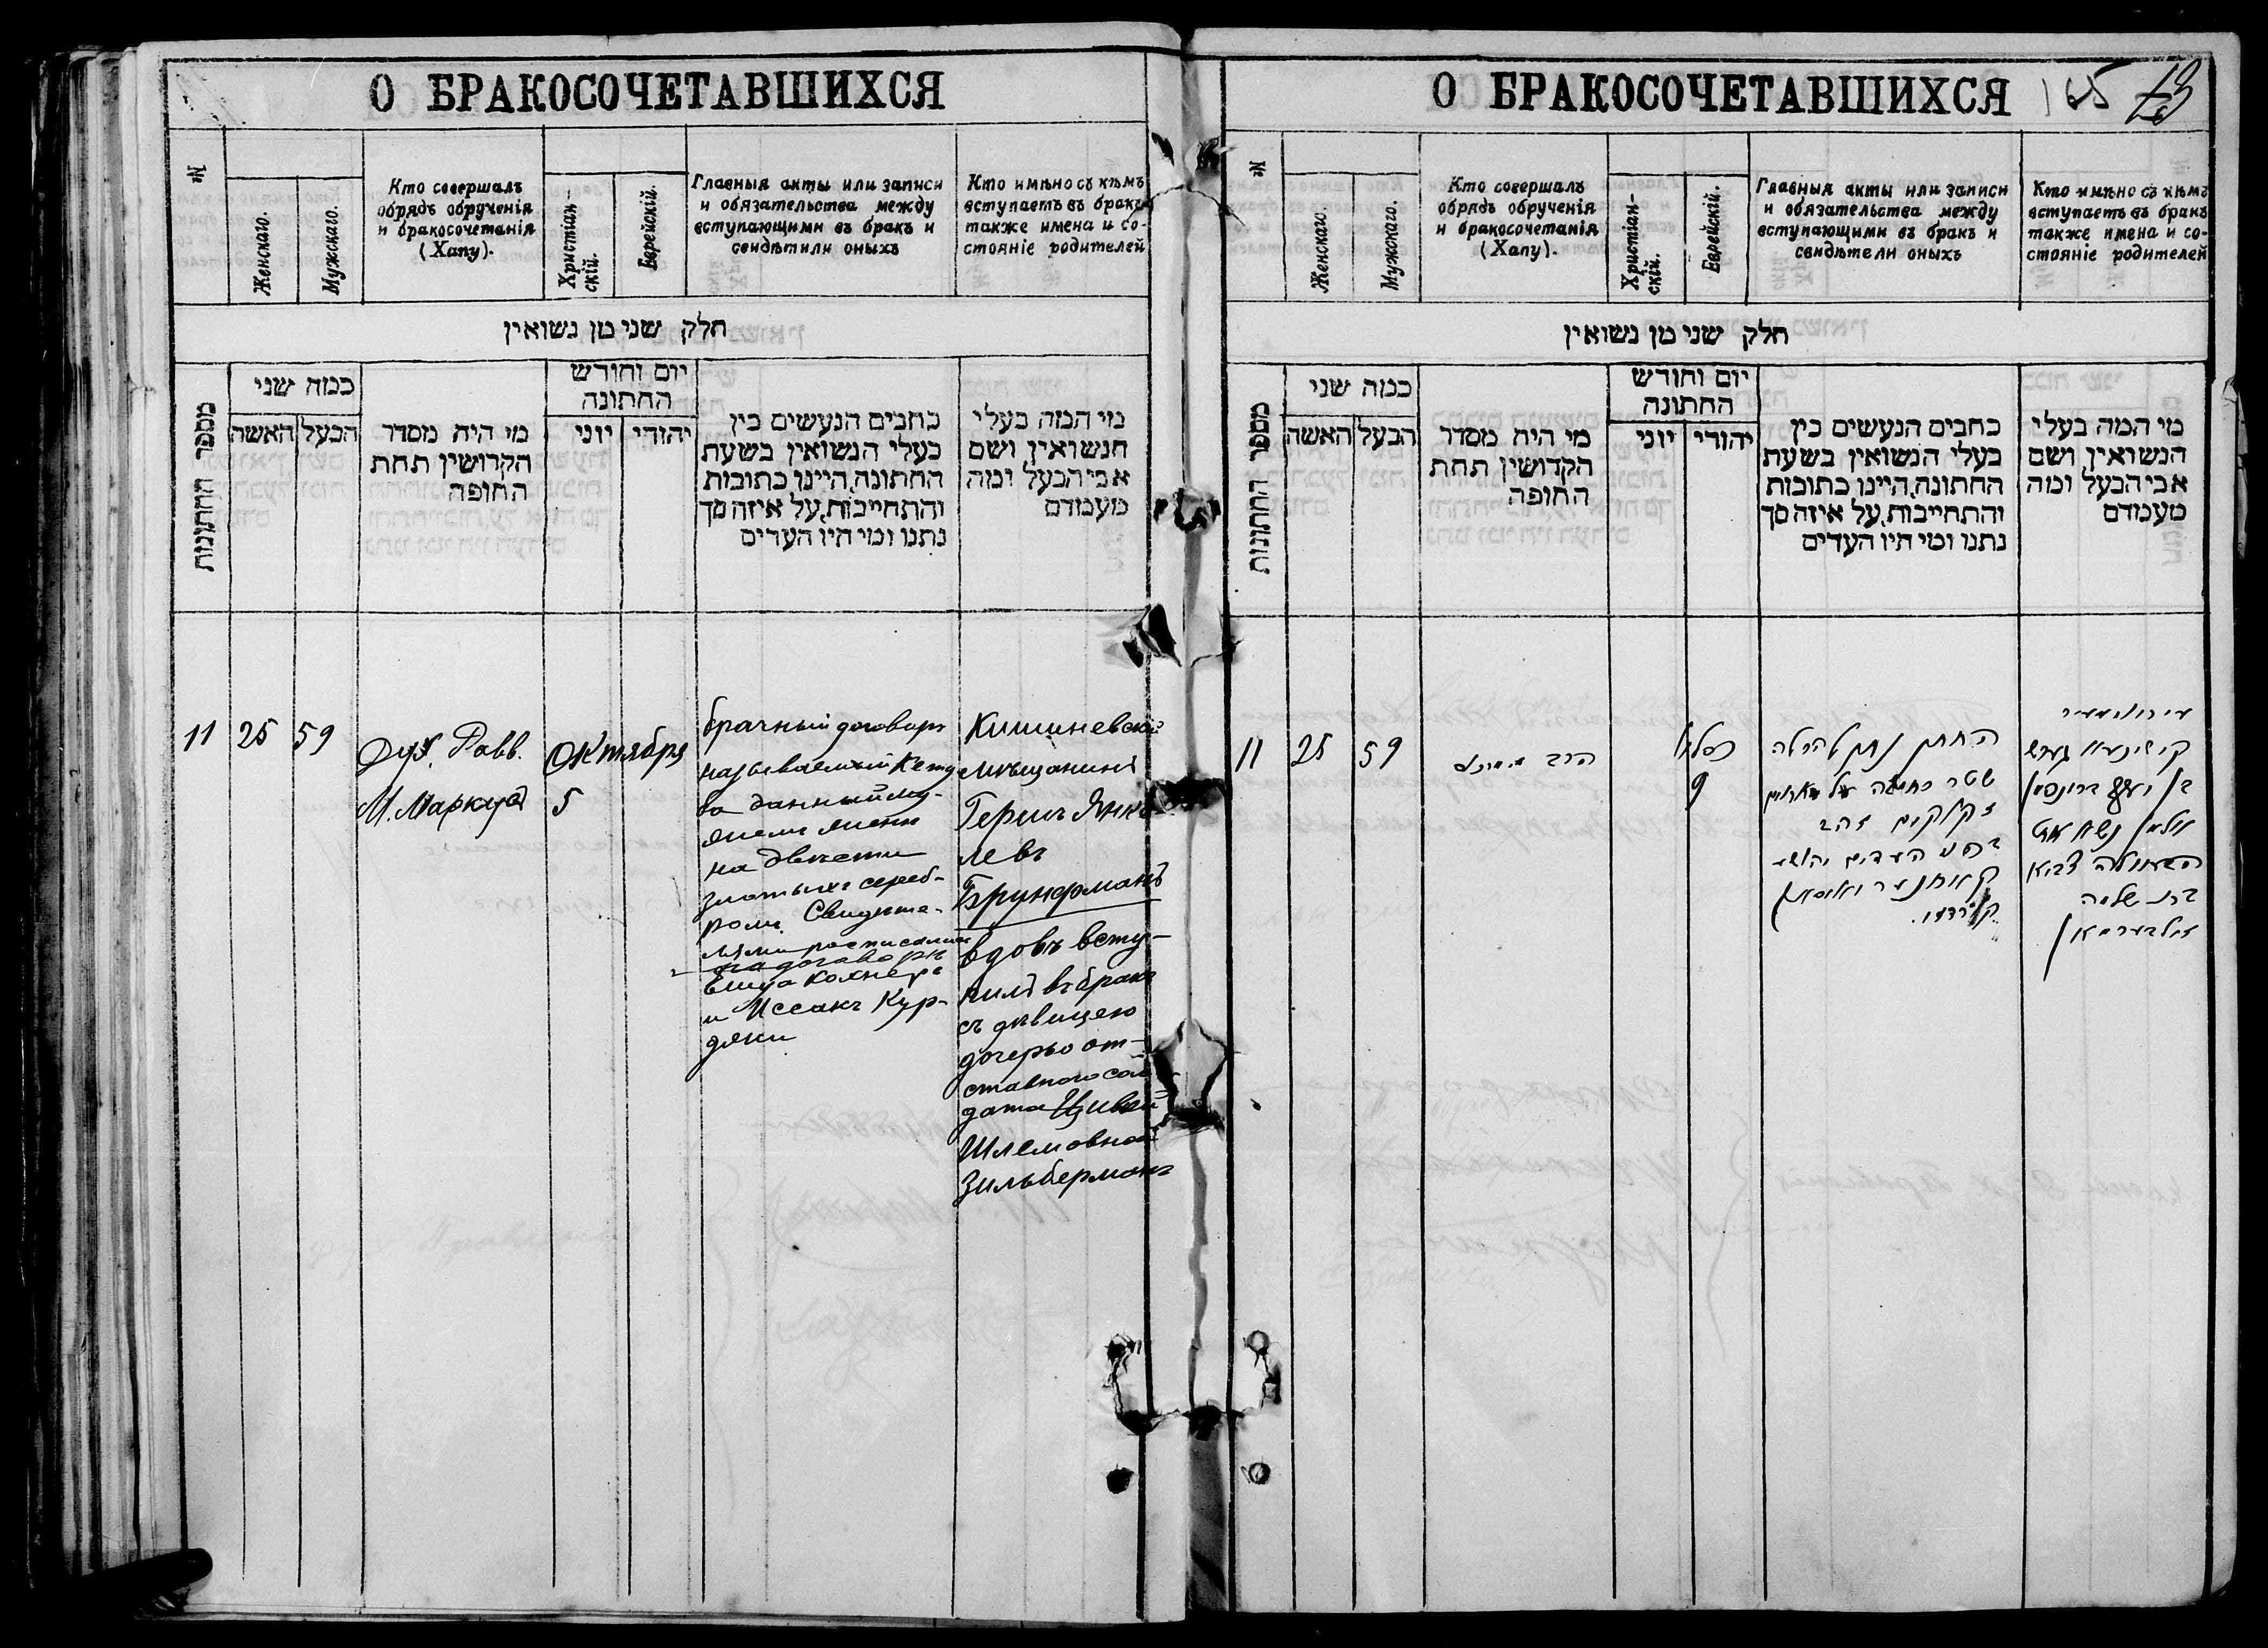 О БРАКОСОЧЕТАВШИХСЯ
№
Женскаго.
Мужскаго.
Кто совершалъ
обрядъ обрученія
и бракосочетанія
(Хапу).
Христіан-
скій.
Еврейскій.
Главныя акты или записи
и обязательства между
вступающими въ бракъ и
свидѣтили оныхъ
Кто имѣно съ кѣмъ
вступаетъ въ бракъ
также имена и со-
стояніе родителей
חלק שני מן נשואין
מספר החתונות
כמה שני
האשה
הבעל
מי היה מסדר
הקדושין תחת
החופה
יום וחודש
החתונה
יוני
יהודי
כתבים הנעשים בין
בעלי הנשואין בשעת
החתונה, היינו כתובות
והתחייבות, על איזה סך
נתנו ומי היו העדים
מי המה בעלי
הנשואין ושם
אבי הבעל ומה
מעמדם
11
25
59
Дух. Равв.
М. Маркуз
Октября
5
брачный договоръ
называемый Кету
ба данный му-
жемъ женѣ
на двѣсти
злотыхъ сереб-
ромъ. Свидѣте-
лями росписались
на договорѣ
Кохнеръ
и Иссакъ Кур-
Кишиневскій
мѣщанинъ
Гершъ Янке-
левъ
Брунфманъ
вдовъ всту-
пилъ въ бракъ
съ дѣвицею
дочерью от-
ставного сол
дата Цивьей
Шлемовной
Зильберманъ
О БРАКОСОЧЕТАВШИХСЯ
165
№
Женскаго.
Мужскаго.
Кто совершалъ
обрядъ обрученія
и бракосочетанія
(Хапу).
Христіан-
скій.
Еврейскій.
Главныя акты или записи
и обязательства между
вступающими въ бракъ и
свидѣтели оныхъ
Кто имѣно съ кѣмъ
вступаетъ въ бракъ
также имена и со-
стояніе родителей
חלק שני מן נשואין
מספר החתונות
כמה שני
האשה
הבעל
מי היה מסדר
הקדושין תחת
החופה
יום וחודש
החתונה
יוני
יהודי
כתבים הנעשים בין
בעלי הנשואין בשעת
החתונה, היינו כתובות
והתחייבות, על איזה סך
נתנו ומי היו העדים
מי המה בעלי
הנשואין ושם
אבי הבעל ומה
מעמדם
11
25
59
הרב
9
החתן נתן להכלה
שטר כתובה על מאתים
זקוקים זהב
העדים יהושע
קישינעוו הערש
בן יעקב ברונפמן
אלמן נשא את
הבתולה צביא
בת שלמה
זילבערמאן